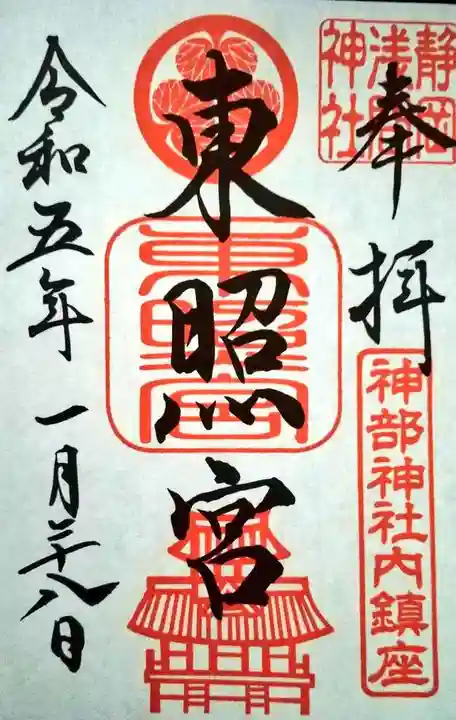 奉拝
静岡
浅間
神社
神部神社内鎮座
東照宮
東照宮
令和五年一月二十八日